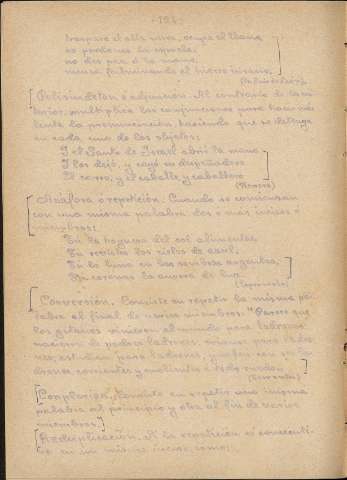 -124-
traspasa el alta sierra, ocupa el llano
no perdones la espuela,
no des paz a la mano,
menea fulminando el hierro insano.
Polisindeton o adjunción. Al contrario de la an-
terior, multiplica las conjunciones para hacer más
lenta la pronunciación haciendo que se detenga
en cada uno de los objetos:
I el Santo de Israel abrió la mano
I los dejó, y cayó en despeñadero
El carro, y el caballo y caballero
(Herrera)
Anáfora o repetición. Cuando se comienzan
con una misma palabra dos o mas incisos o
miembros:
Tú la hoguera del sol alimentas
Tú revistes los cielos de azul,
Tú la luna en las sombras argentas,
Tú coronas la aurora de luz.
(Espronceda)
Conversión. Consiste en repetir la misma pa-
labra al final de varios miembros: "Parece que
los gitanos vinieron al mundo para ladrones:
nacieron de padres ladrones, críanse para ladro-
nes, estudian para ladrones, y salen con ser la-
drones corrientes y molientes a todo ruedo.
(Cervantes)
Complexión. Consiste en repetir una misma
palabra al principio y otra al fin de varios
miembros.
Reduplicación. Si la repetición es consecuti-
va en un mismo inciso como: